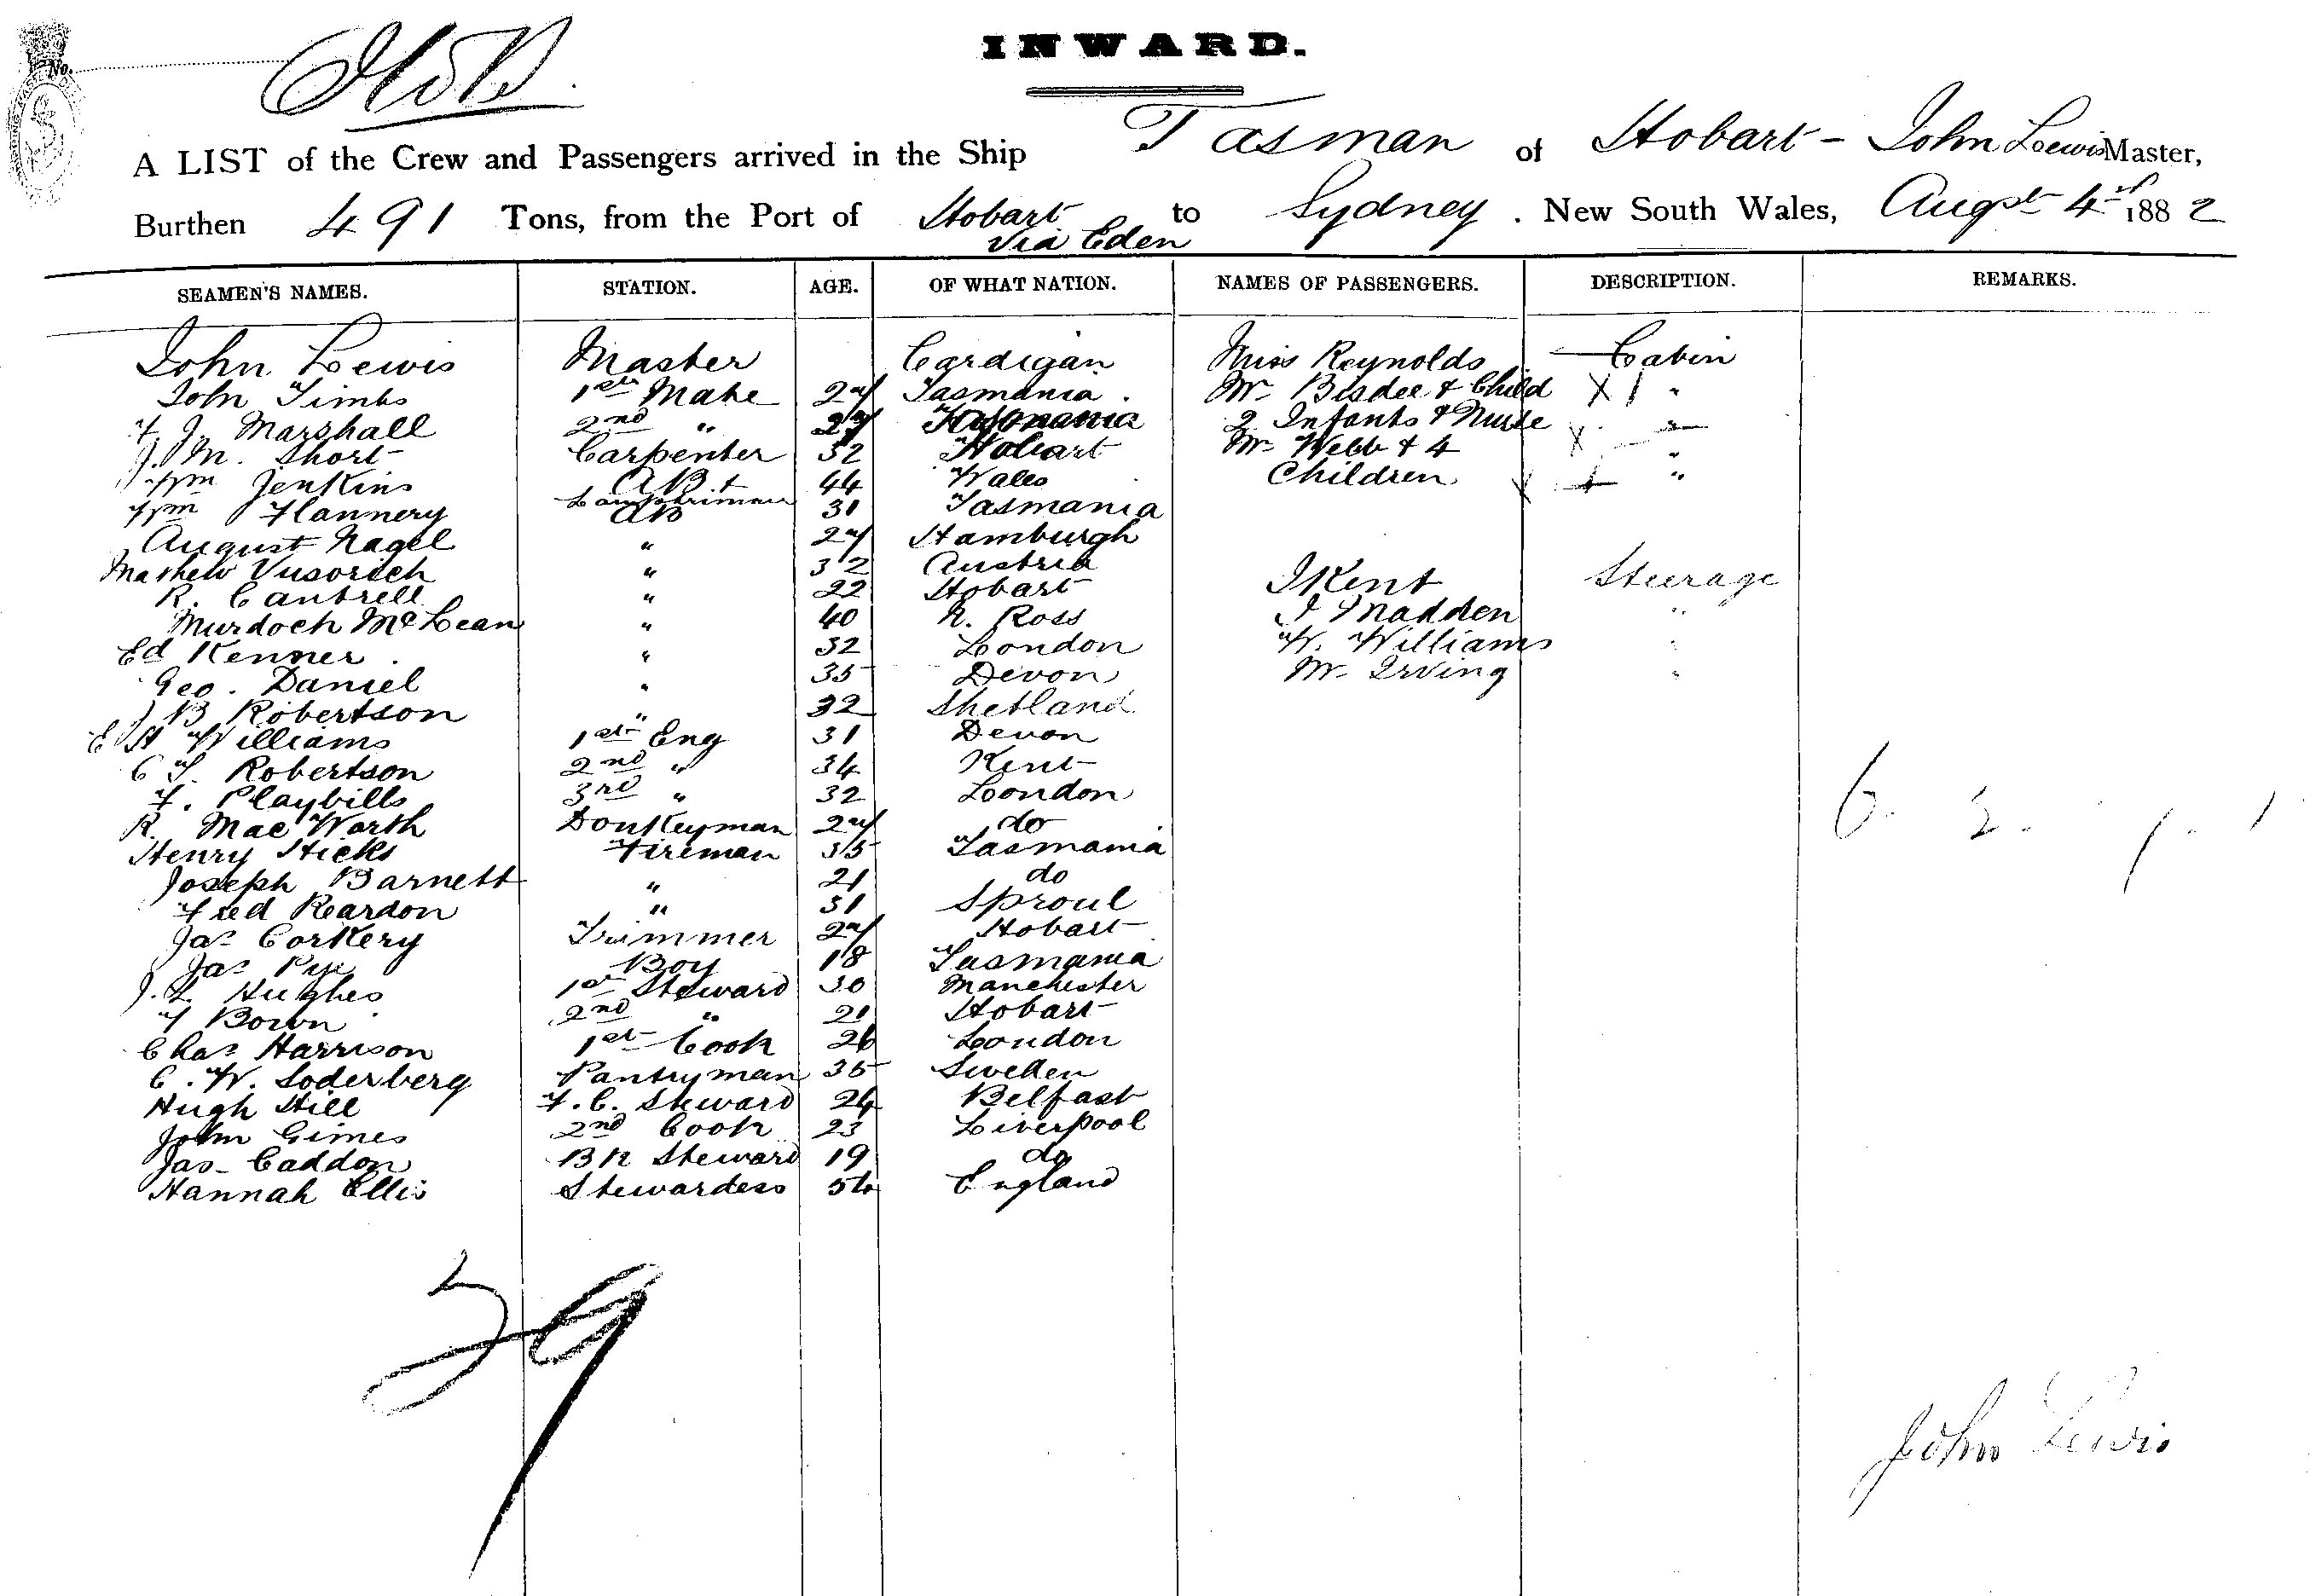 INWARD.
No.
A LIST of the Crew and Passengers arrived in the Ship Tasman of Hobart - John Lewis Master,
Burthen 491 Tons, from the Port of Hobart via Eden to Sydney. New South Wales, Augst 4th 1882
SEAMEN'S NAMES. STATION. AGE. OF WHAT NATION. NAMES OF PASSENGERS. DESCRIPTION. REMARKS.
John Lewis Master Cardigan Miss Reynolds Cabin
John Timbs 1st Mate 27 Tasmania. Mr Bisdee & Child X 1 "
F. J. Marshall 2nd " 27 Tasmania 2 Infants & Nurse "
J. M. Short Carpenter 32 Hobart Mr Webb & 4 X "
Wm Jenkins AB & Lamptrimmer 44 Wales Children "
Wm Flannery AB 31 Tasmania
August Nagel " 27 Hamburgh
Mathew " 32 Austria
R. Cantrell " 22 Hobart J Kent Steerage
Murdoch McLean " 40 N. Ross J Madden "
Ed Kenner " 32 London W. Williams "
Geo. Daniel " 35 Devon Mr Irving "
J B Robertson " 32 Shetland
E H Williams 1st Eng 31 Devon
C T. Robertson 2nd " 34 Kent
F. Playbills 3rd " 32 London
R. MacWorth Donkeyman 27 do
Henry Hicks Fireman 35 Tasmania
Joseph Barnett " 21 do
Fred Reardon " 31 Sproul
Jas Corkery Trimmer 27 Hobart
Jas Pye Boy 18 Tasmania
J. L. Hughes 1st Steward 30 Manchester
F Bown 2nd " 21 Hobart
Chas Harrison 1st Cook 26 London
C. W. Soderberg Pantryman 35 Sweden
Hugh Hill F.C. Steward 24 Belfast
John Gimes 2nd Cook 23 Liverpool
Jas Caddon BK Steward 19 do
Hannah Ellis Stewardess 56 England
6. 3. 1. 1
29
John Lewis